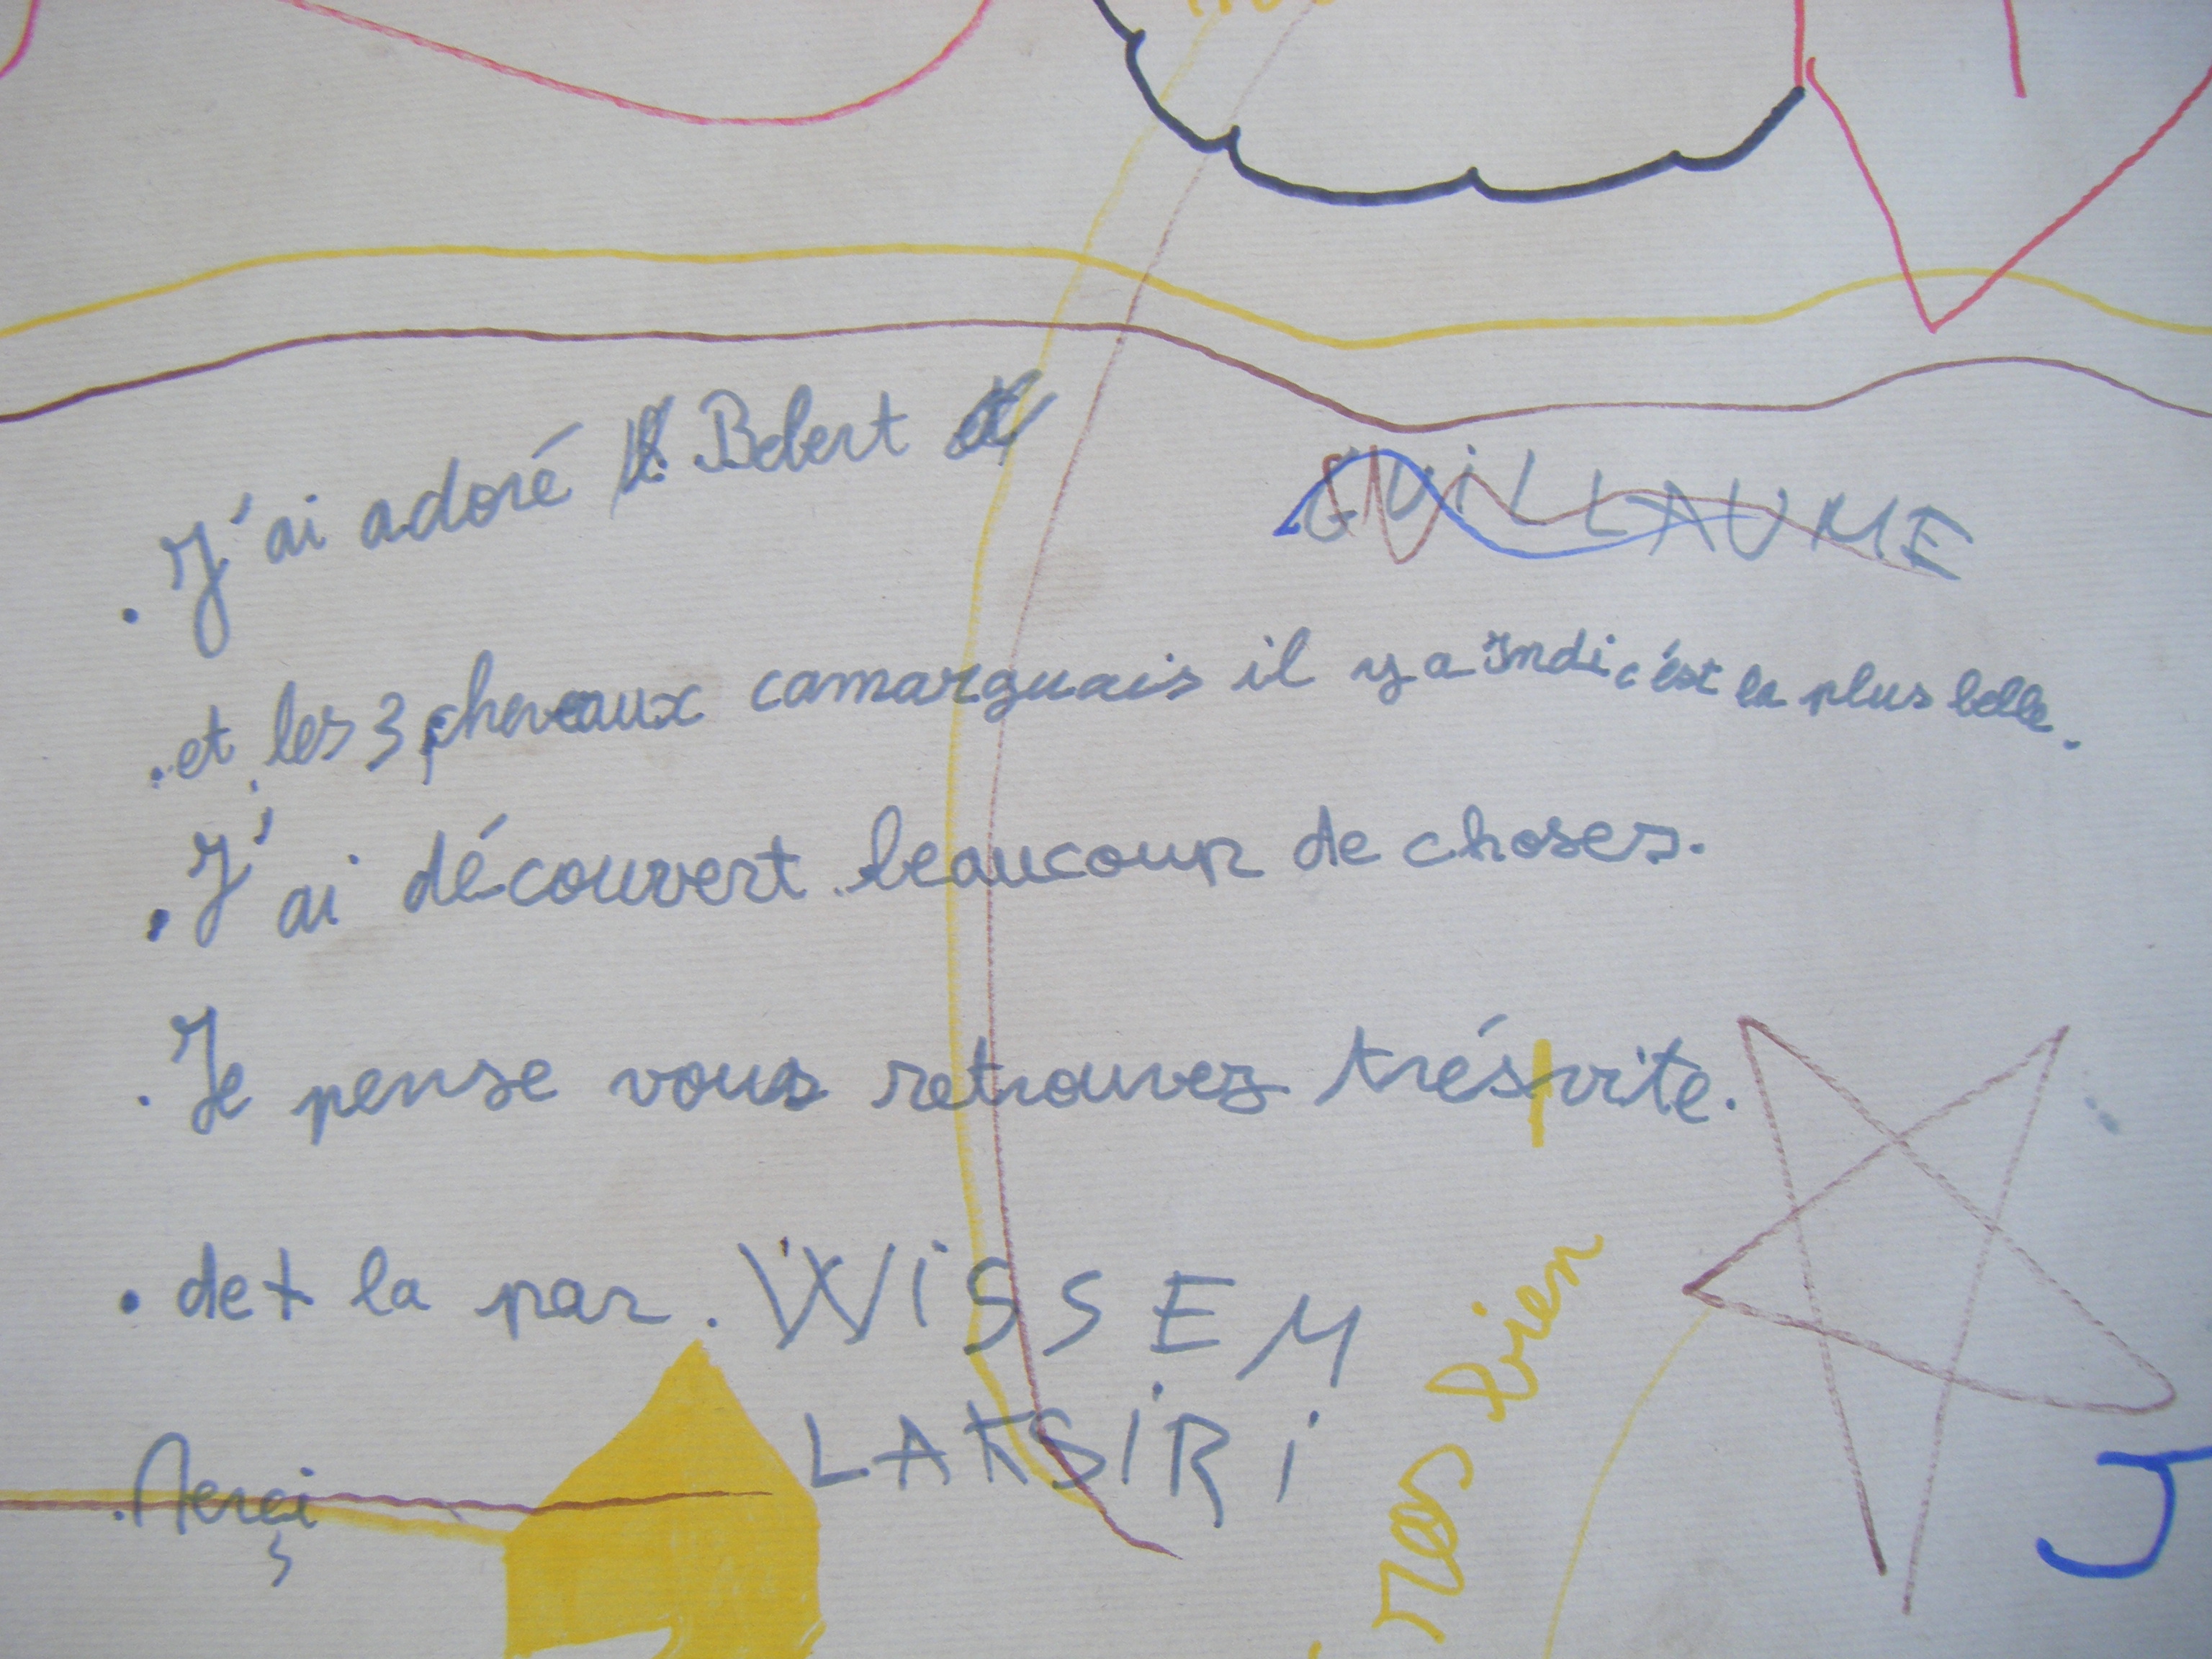 . J'ai adoré Bebert
GUILLAUME
. et les 3 chevaux camarguais il y a Indi c'est la plus belle.
. J'ai découvert beaucoup de choses.
. Je pense vous retrouvez trés vite.
. det la par . WiSSEM
LAKSiRi
. Merçi
bien
J